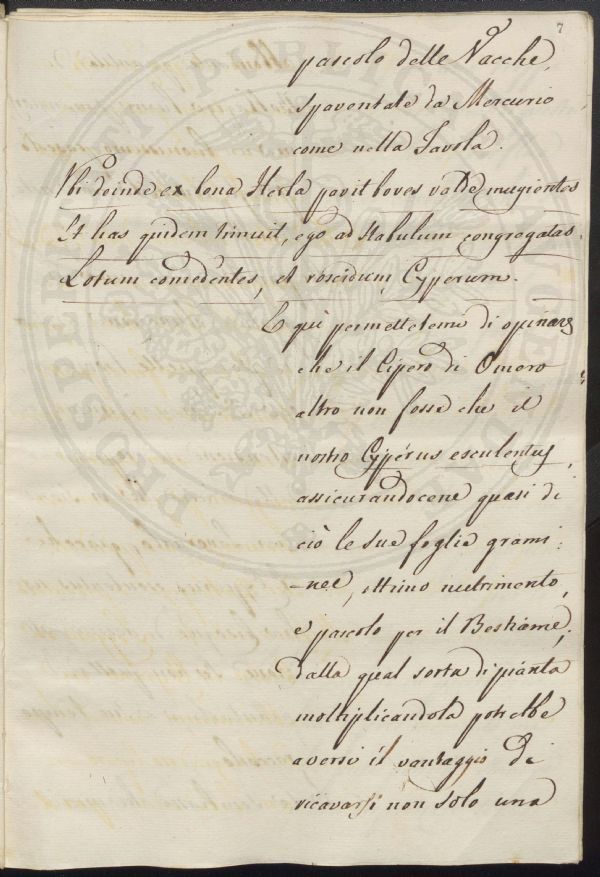 7
pascolo delle Vacche,
spaventate da Mercurio
come nella Favola.
Ubi deinde ex bona Herba pavit boves valde mugientes
Et has quidem trinuit, ego ad stabulum congregatas.
Lotum comedentes, et roscidum Cyperum.
E qui permettetemi di opinare
che il Cipero di Omero
altro non fosse che il
nostro Cypérus esculentus,
assicurandocene quasi di
ciò le sue foglie grami:
-nee, ottimo nutrimento,
e pascolo per il Bestiame;
dalla qual sorta di pianta
moltiplicandola potrebbe
aversi il vantaggio di
ricavarsi non solo una